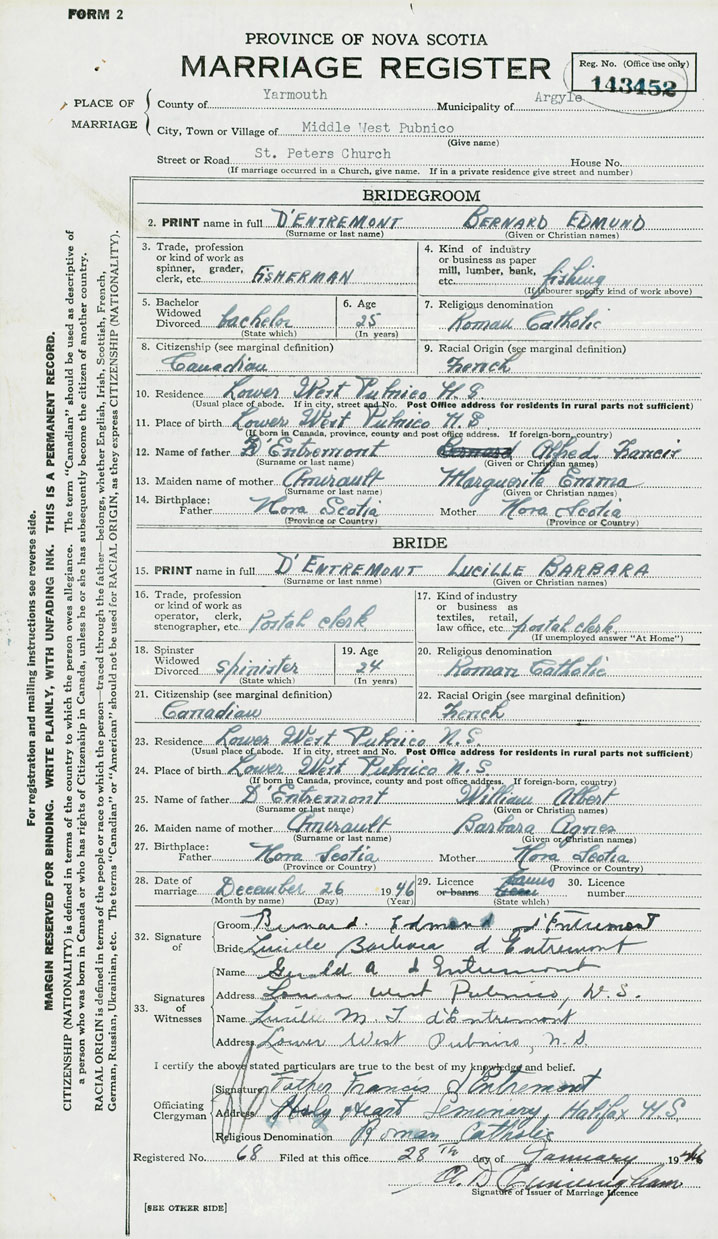 FORM 2
PROVINCE OF NOVA SCOTIA
MARRIAGE REGISTER
Reg. No. (Office use only)
143452
PLACE OF MARRIAGE
County of Yarmouth Municipality of Argyle
City, Town or Village of Middle West Pubnico
(Give name)
Street or Road St. Peters Church House No.
(If marriage occurred in a Church, give name. If in a private residence give street and number)
BRIDEGROOM
2. PRINT name in full D'ENTREMONT BERNARD EDMUND
(Surname or last name) (Given or Christian names)
3. Trade, profession or kind of work as spinner, grader, clerk, etc. FISHERMAN
4. Kind of industry or business as paper mill, lumber, bank, etc. fishing
(If labourer specify kind of work above)
5. Bachelor Widowed Divorced bachelor (State which)
6. Age 25 (In years)
7. Religious denomination Roman Catholic
8. Citizenship (see marginal definition) Canadian
9. Racial Origin (see marginal definition) French
10. Residence Lower West Pubnico N.S.
(Usual place of abode. If in city, street and No. Post Office address for residents in rural parts not sufficient)
11. Place of birth Lower West Pubnico N.S
(If born in Canada, province, county and post office address. If foreign-born, country)
12. Name of father D'Entremont Alfred Francis
(Surname or last name) (Given or Christian names)
13. Maiden name of mother Amirault Marguerite Emma
(Surname or last name) (Given or Christian names)
14. Birthplace: Father Nova Scotia Mother Nova Scotia
(Province or Country) (Province or Country)
BRIDE
15. PRINT name in full D'ENTREMONT LUCILLE BARBARA
(Surname or last name) (Given or Christian names)
16. Trade, profession or kind of work as operator, clerk, stenographer, etc. Postal clerk
17. Kind of industry or business as textiles, retail, law office, etc. postal clerk
(If unemployed answer "At Home")
18. Spinster Widowed Divorced Spinister (State which)
19. Age 24 (In years)
20. Religious denomination Roman Catholic
21. Citizenship (see marginal definition) Canadian
22. Racial Origin (see marginal definition) French
23. Residence Lower West Pubnico N.S.
(Usual place of abode. If in city, street and No. Post Office address for residents in rural parts not sufficient)
24. Place of birth Lower West Pubnico N.S.
(If born in Canada, province, county and post office address. If foreign-born, country)
25. Name of father D'Entremont William Albert
(Surname or last name) (Given or Christian names)
26. Maiden name of mother Amirault Barbara Agnes
(Surname or last name) (Given or Christian names)
27. Birthplace: Father Nova Scotia Mother Nova Scotia
(Province or Country) (Province or Country)
28. Date of marriage December 26 1946
(Month by name) (Day) (Year)
29. Licence or banns Banns (State which)
30. Licence number
32. Signature of
Groom Bernard Edmund d'Entremont
Bride Lucille Barbara d'Entremont
33. Signatures of Witnesses
Name Gerald A d'Entremont
Address Lower West Pubnico, N.S.
Name Lucille M. T. d'Entremont
Address Lower West Pubnico, N.S.
I certify the above stated particulars are true to the best of my knowledge and belief.
Officiating Clergyman
Signature Father Francis d'Entremont
Address Holy Heart Seminary, Halifax N.S.
Religious Denomination Roman Catholic
Registered No. 68 Filed at this office 28TH day of January 19
A. D. Cunningham
Signature of Issuer of Marriage Licence
[SEE OTHER SIDE]
For registration and mailing instructions see reverse side.
MARGIN RESERVED FOR BINDING. WRITE PLAINLY, WITH UNFADING INK. THIS IS A PERMANENT RECORD.
CITIZENSHIP (NATIONALITY) is defined in terms of the country to which the person owes allegiance. The term "Canadian" should be used as descriptive of
a person who was born in Canada or who has rights of Citizenship in Canada, unless he or she has subsequently become the citizen of another country.
RACIAL ORIGIN is defined in terms of the people or race to which the person—traced through the father—belongs, whether English, Irish, Scottish, French,
German, Russian, Ukrainian, etc. The terms "Canadian" or "American" should not be used for RACIAL ORIGIN, as they express CITIZENSHIP (NATIONALITY).